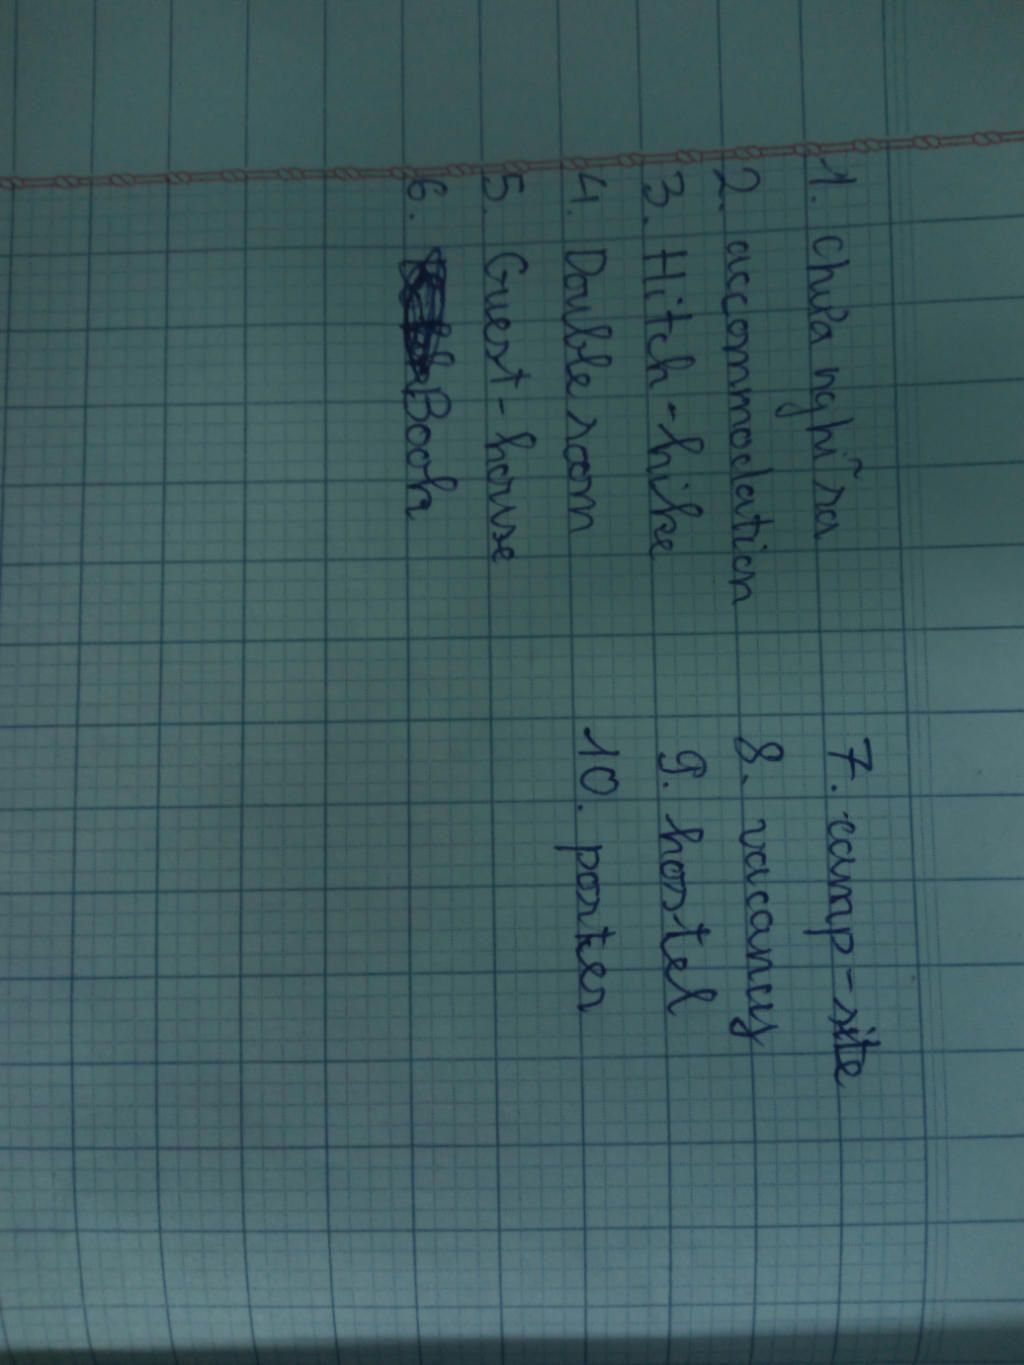 1. chưa nghĩ ra
2. accommodation
3. Hitch-hike
4. Double room
5. Guest-house
6. Book
7. camp-site
8. vacancy
9. hostel
10. porter